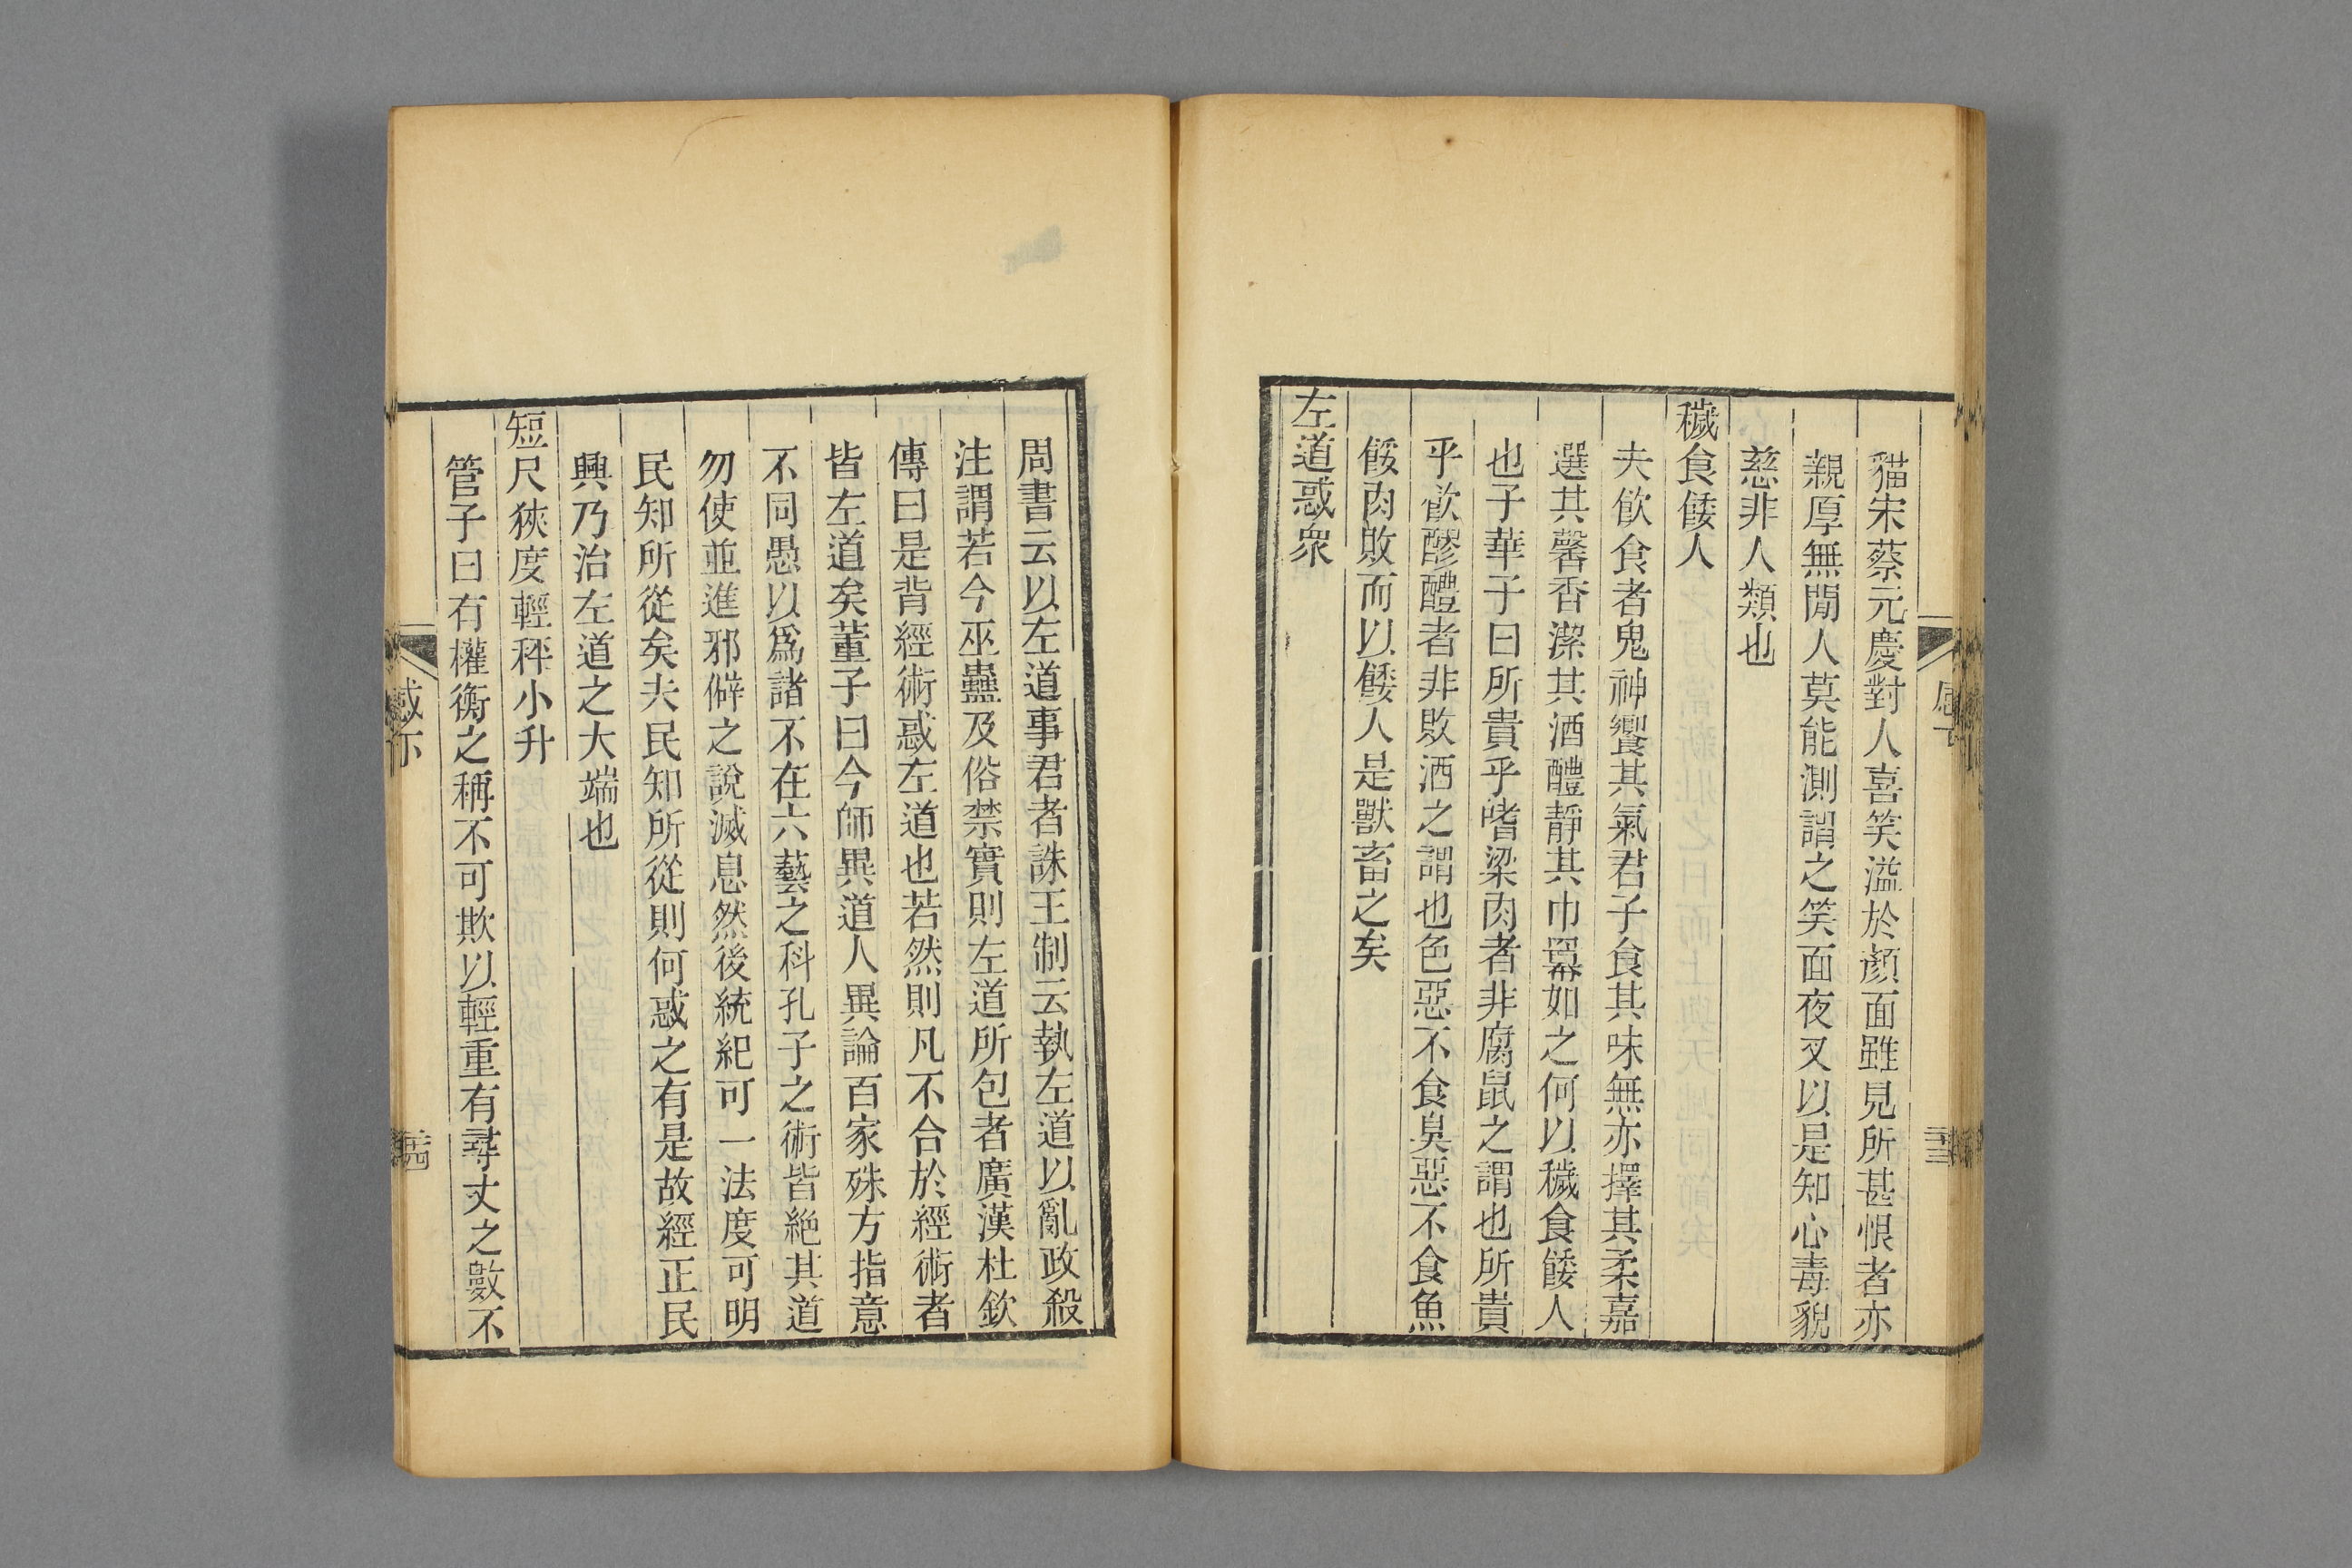 貓宋蔡元慶對人喜笑溢於顏面雖見所甚恨者亦
親厚無閒人莫能測謂之笑面夜叉以是知心毒貌
慈非人類也
穢食餧人
夫飮食者鬼神饗其氣君子食其味無亦擇其柔嘉
選其馨香潔其酒醴靜其巾羃如之何以穢食餧人
也子華子曰所貴乎嗜粱肉者非腐鼠之謂也所貴
乎飮醪醴者非敗酒之謂也色惡不食臭惡不食魚
餒肉敗而以餧人是獸畜之矣
左道惑衆
周書云以左道事君者誅王制云執左道以亂政殺
注謂若今巫蠱及俗禁實則左道所包者廣漢杜欽
傳曰是背經術惑左道也若然則凡不合於經術者
皆左道矣董子曰今師異道人異論百家殊方指意
不同愚以爲諸不在六藝之科孔子之術皆絕其道
勿使並進邪僻之說滅息然後統紀可一法度可明
民知所從矣夫民知所從則何惑之有是故經正民
興乃治左道之大端也
短尺狹度輕秤小升
管子曰有權衡之稱不可欺以輕重有尋丈之數不
感下